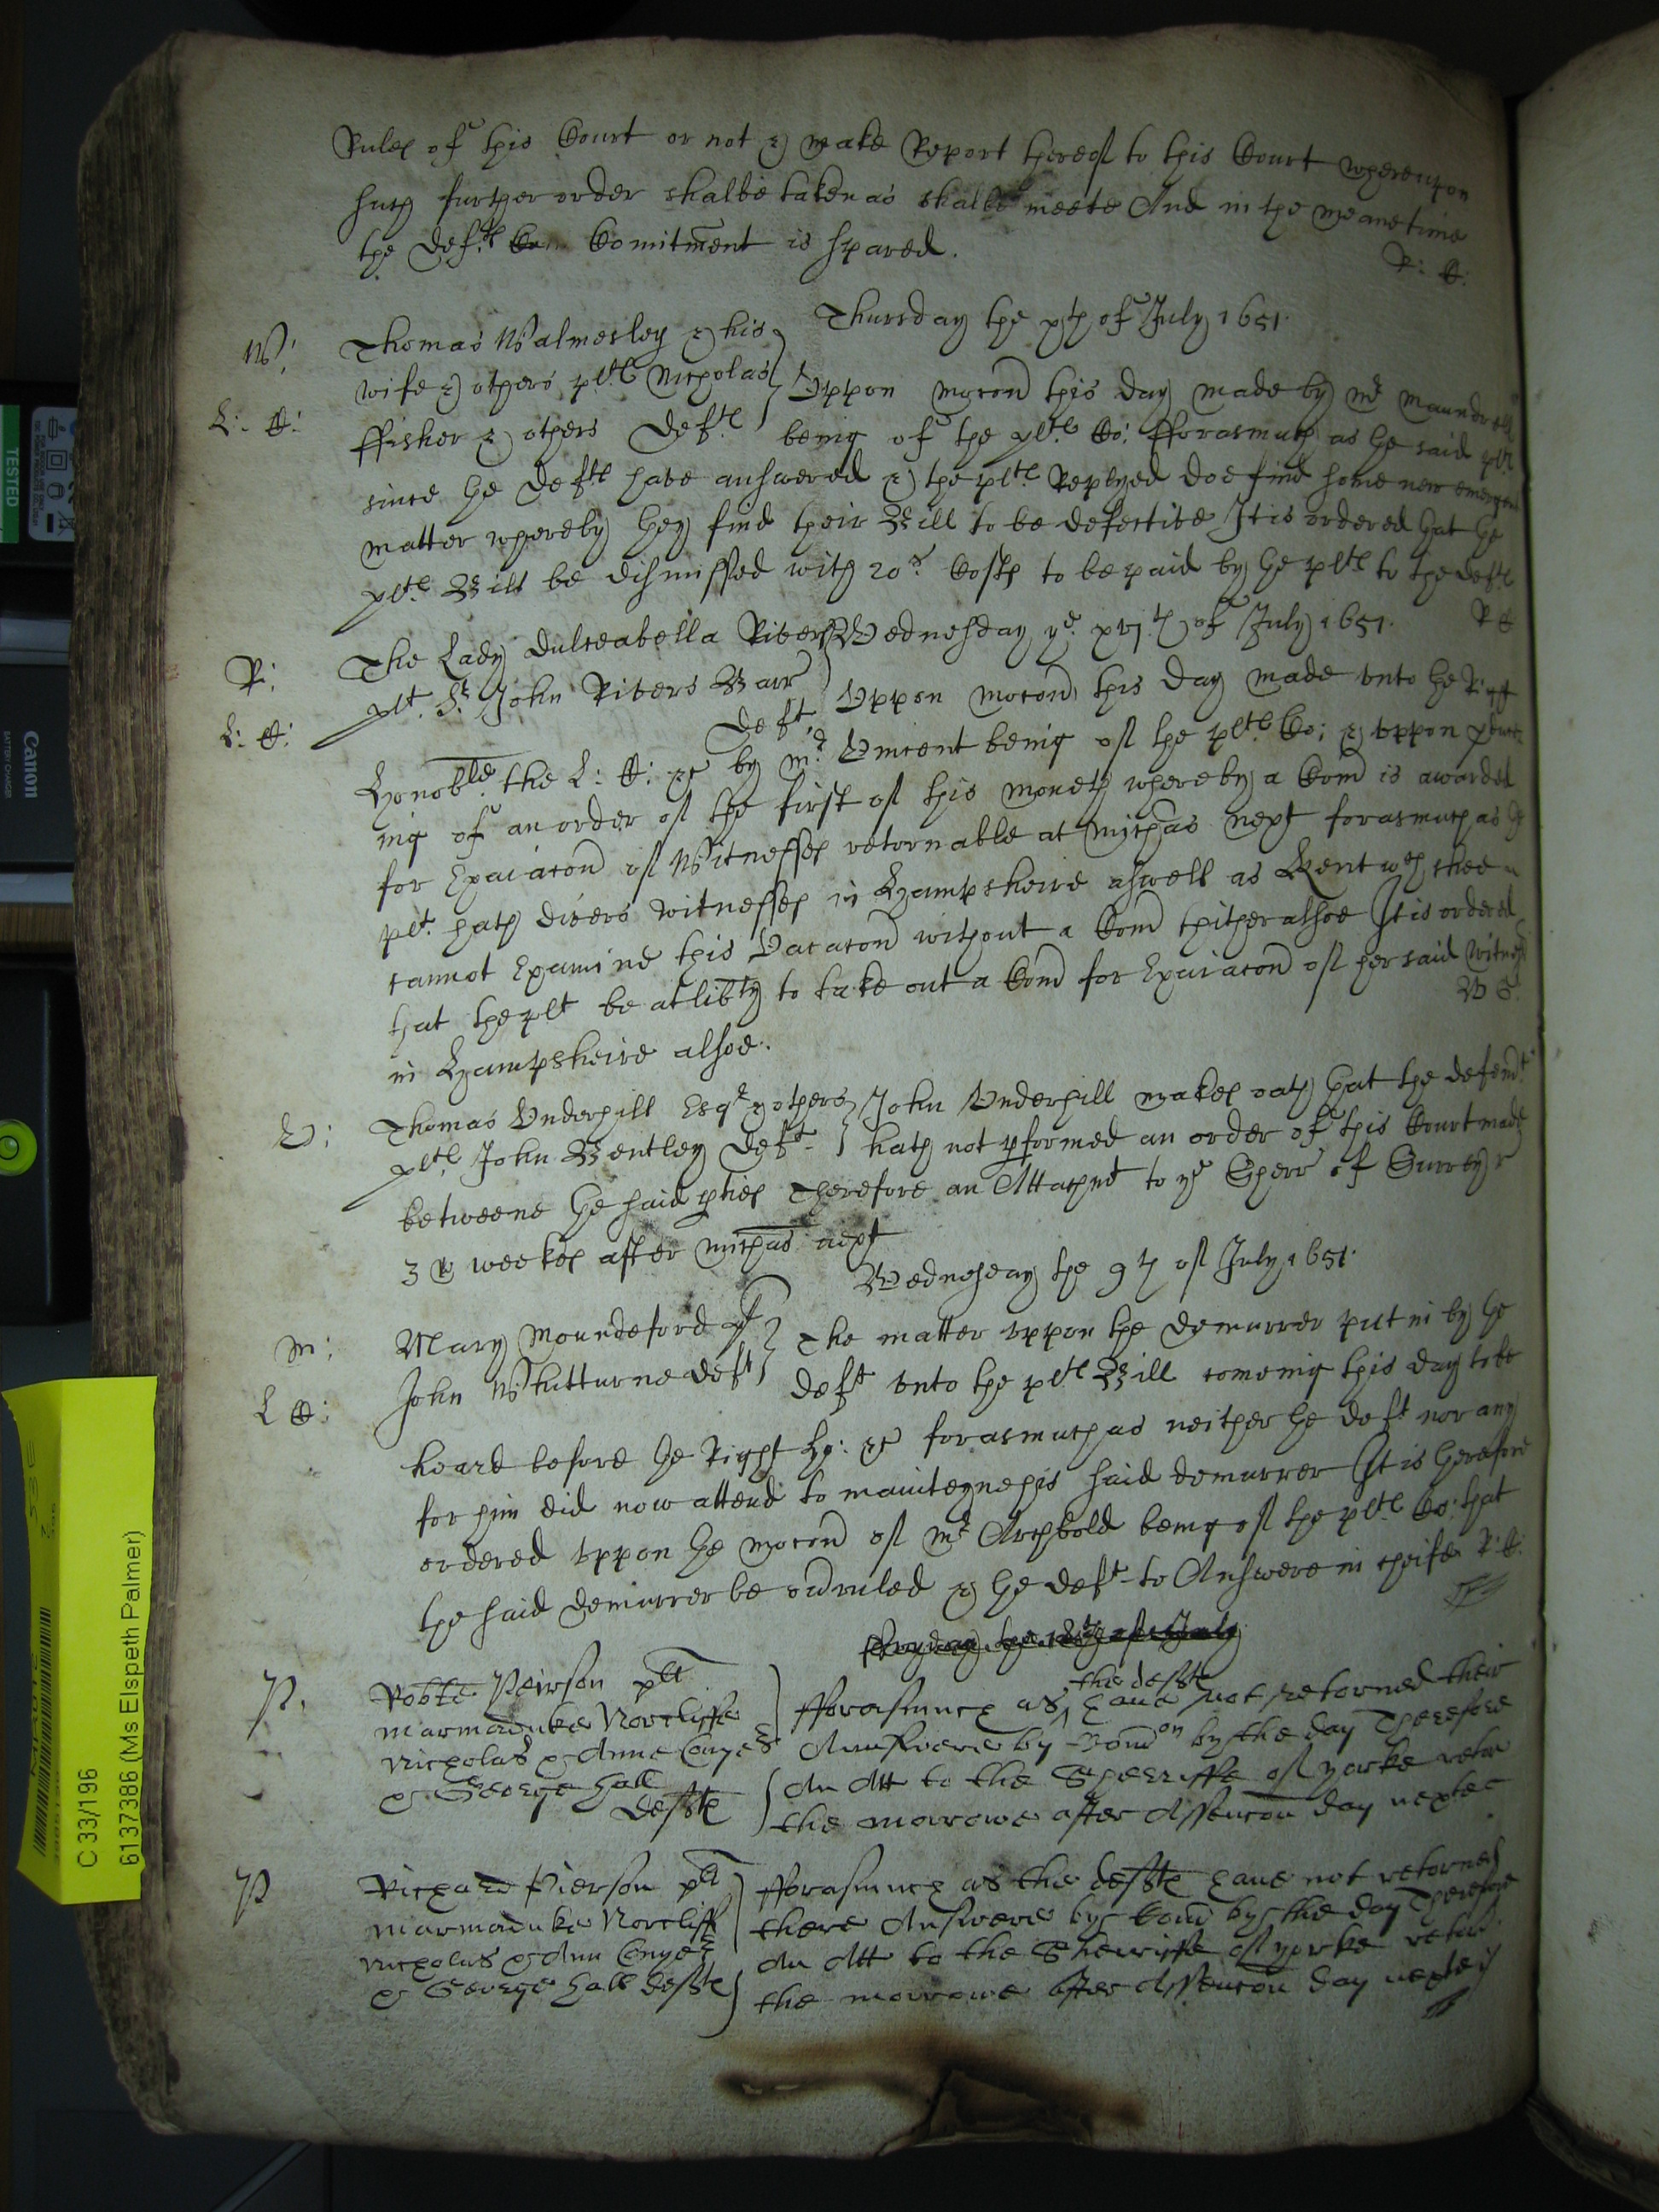 Rules of this Court or not & make Report thereof to this Court whereupon
such further order shalbe taken as shalbe meete And in the meane time
the Deftes Comitment is spared.
R: C:
Thursday the xth of July 1651.
W: Thomas Walmesley & his
wife & others pltes Nicholas
ffisher & others Deftes
Uppon mocon this day made by Mr Maundrell
L: C: being of the pltes Co: fforasmuch as the said plts
since the Deftes have answered & the pltes Replyed doe find some new emergent
matter whereby they find their Bill to be defective It is ordered that the
pltes Bill be dismissed with 20s Costes to be paid by the pltes to the deftes
R C
Wednesday ye xvjth of July 1651.
R: The Lady Dulceabella Rivers
plt. Sr John Rivers Barr
Deft.
Uppon mocon this day made unto the Right
L: C: Honoble the L: C: &c by Mr Vincent being of the pltes Co: & uppon produc
ing of an order of the first of this moneth whereby a Com is awarded
for Exaiacon of Witnesses retornable at Michas next forasmuch as the
plt. hath divers witnesses in Hampsheire aswell as Kent wch shee
cannot Examine this Vacacon without a Com thither alsoe It is ordered
that the plt be at libty to take out a Com for Exaiacon of her said witness
in Hampsheire alsoe.
V: Thomas Underhill Esqr & others
pltes John Bentley Deft.
John Underhill makes oath that the defendt
hath not pformed an order of this Court made
betweene the said pties Therefore an Attachmt to ye Sherr of Surrey r
3 weekes after Michas next
Wednesday the 9th of July 1651.
M: Mary Moundeford plt
John Whitturne deft
The matter uppon the Demurrer put in by the
deft unto the pltes Bill comeing this day to be
L C: heard before the Right Ho: &c forasmuch as neither the deft nor any
for him did now attend to mainteyne his said demurrer It is therefore
ordered uppon the mocon of Mr Archbold being of the pltes Co: that
the said demurrer be overruled & the deft to Answere in cheife R: C:
ffryday the 18th of July
P. Robte Peirson plt
Marmaduke Norcliffe
Nicholas & Anne Conyers
& George Hall
defftes
fforasmuch as the defftes have not retorned their
Aunswere by Comon by the day Therefore
An Att to the Sherriffe of yorke retor
the morrowe after Assencon day nexte
P Richard Pierson plt
Marmaduke Norcliff
Nicholas & Ann Conyers
& George Hall defftes
fforasmuch as the defftes have not retorned
there Answere by Com by the day Therefore
An Att to the Sherriffe of yorke retor
the morrowe after Assencon day nexte
TESTED
Canon
BATTERY CHARGER
C 33/196
61373786 (Ms Elspeth Palmer)